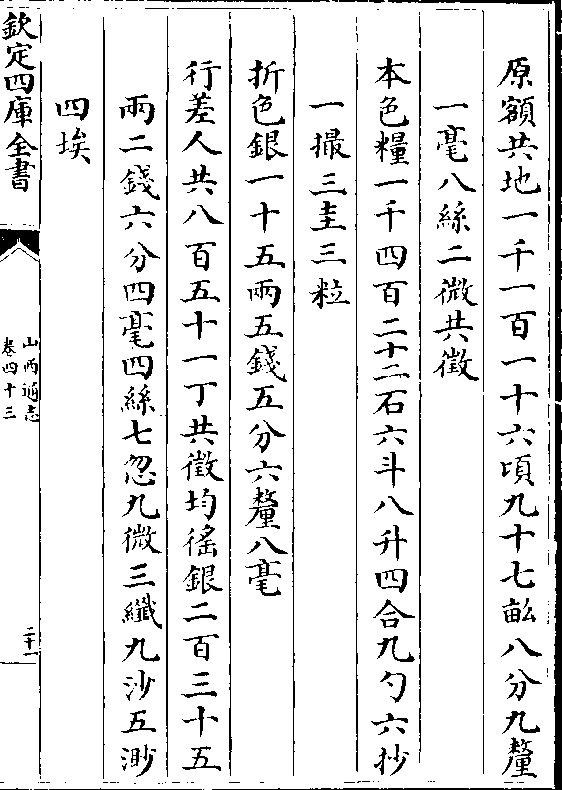 原額共地一千一百一十六頃九十七畝八分九釐
一毫八絲二微共徵
本色糧一千四百二十二石六斗八升四合九勺六抄
一撮三圭三粒
折色銀一十五兩五錢五分六釐八毫
行差人共八百五十一丁共徵均徭銀二百三十五
兩二錢六分四毫四絲七忽九微三纖九沙五渺
四埃
欽定四庫全書
山西通志
卷四十三
二十一